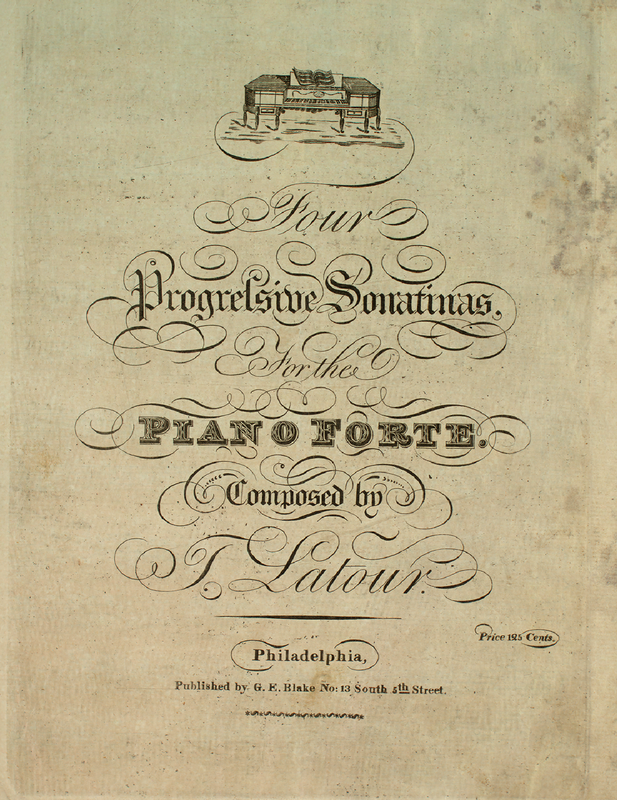 Four
Progreſsive Sonatinas,
For the
PIANO FORTE.
Composed by
T. Latour.
Price 125 Cents.
Philadelphia,
Published by G. E. Blake No: 13 South 5th Street.